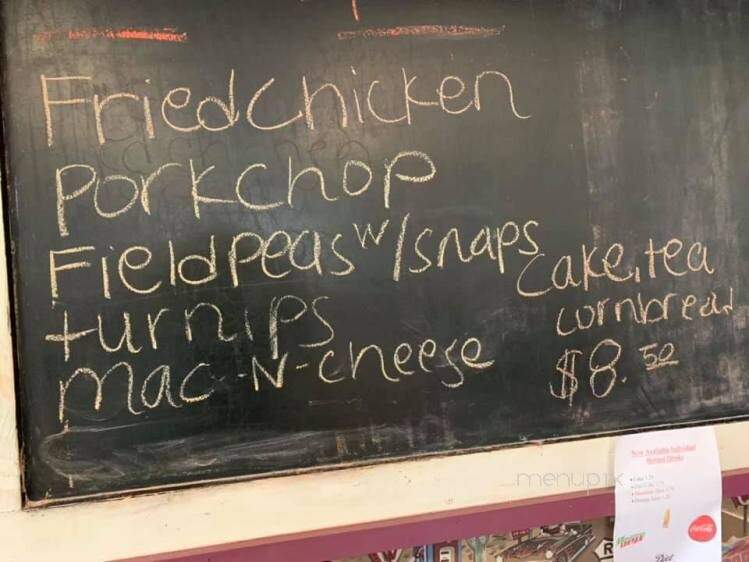 Fried chicken
Porkchop
Field peas w/snaps
turnips
mac-N-cheese
cake, tea
cornbread
$8.50
menupix
Now Available Individual
Coca-Cola
Diet